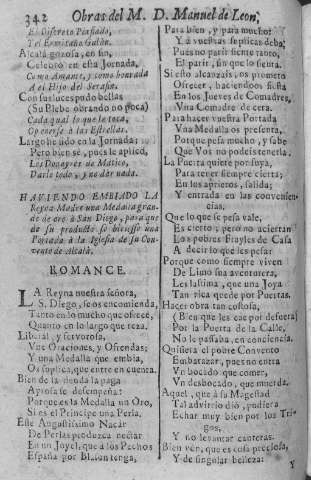 342 Obras del M. D. Manuel de Leon,
El Discreto Porfiado,
Y el Ermitaño Galán.
Alcalá gozosa, en fin,
Celebró en esta Jornada,
Como Amante, y como honrada
A el Hijo del Serafin.
Con sus luces pudo bellas
(Su Plebe obrando no poca)
Cada qual lo que le toca,
Oponerse á las Estrellas.
Largo ha sido en la Jornada;
Pero bien sé, pues le aplico,
Los Donayres de Matico,
Darle todo, y no dar nada.
HAVIENDO EMBIADO LA
Reyna Madre una Medalla gran-
de de oro à San Diego, para que
de su producto se hiciesse una
Portada à la Iglesia de su Con-
vento de Alcalà.
ROMANCE.
LA Reyna nuestra señora,
S. Diego, se os encomienda,
Tanto en lo mucho que ofrece,
Quanto en lo largo que reza.
Liberal, y fervorosa,
Une Oraciones, y Ofrendas;
Y una Medalla que embia,
Os suplica, que entre en cuenta.
Bien de la deuda la paga
Aprossa se desempeña:
Porque es la Medalla un Oro,
Si es el Principe una Perla.
Este Augustissimo Nacar
De Perlas produzca nectar
En un Joyel, que à los Pechos
España por Blason tenga,
Para bien, y para mucho:
Y á vuestras suplicas deba;
Pues no parir siente tanto,
El parir, sin que lo sienta.
Si esto alcanzais, os prometo
Ofrecer, haciendoos fiesta
En los Jueves de Comadres,
Una Comadre de cera.
Para hacer vuestra Portada
Una Medalla os presenta,
Porque pesa mucho, y sabe
Que Vos no podeis tenerla.
La Puerta quiere por suya,
Para tener siempre cierta;
En los aprietos, salida;
Y entrada en las convenien-
cias,
Que lo que se pesa vale,
Es cierto; pero no aciertan
Los pobres Frayles de Casa
A decir lo que les pesa:
Porque como siempre viven
De Limosna avcorurera,
Les lastima, que una Joya
Tan rica quede por Puertas.
Hacer obra tan costosa,
(Bien que les cae por defuera)
Por la Puerta de la Calle,
No le passaba, en conciencia.
Quisiera el pobre Convento
Embarazar, pues no entra
Un bocado que comer,
Un desbocado, que muerda.
Aquel, que à su Magestad
Tal advirtió dió, pudiera
Echar muy bien por los Tri-
gos,
Y no levantar canteras.
Bien veo, que es cosa preciosa,
Y de singular belleza:
Y